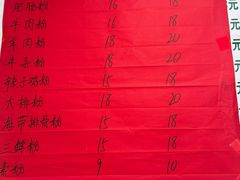 肥肠粉 16 18
牛肉粉 16 18
羊肉粉 18 20
牛杂粉 18 20
辣子鸡粉 15 18
大排粉 18 20
海带排骨粉 15 18
三鲜粉 15 18
素粉 9 10
元
元
元
元